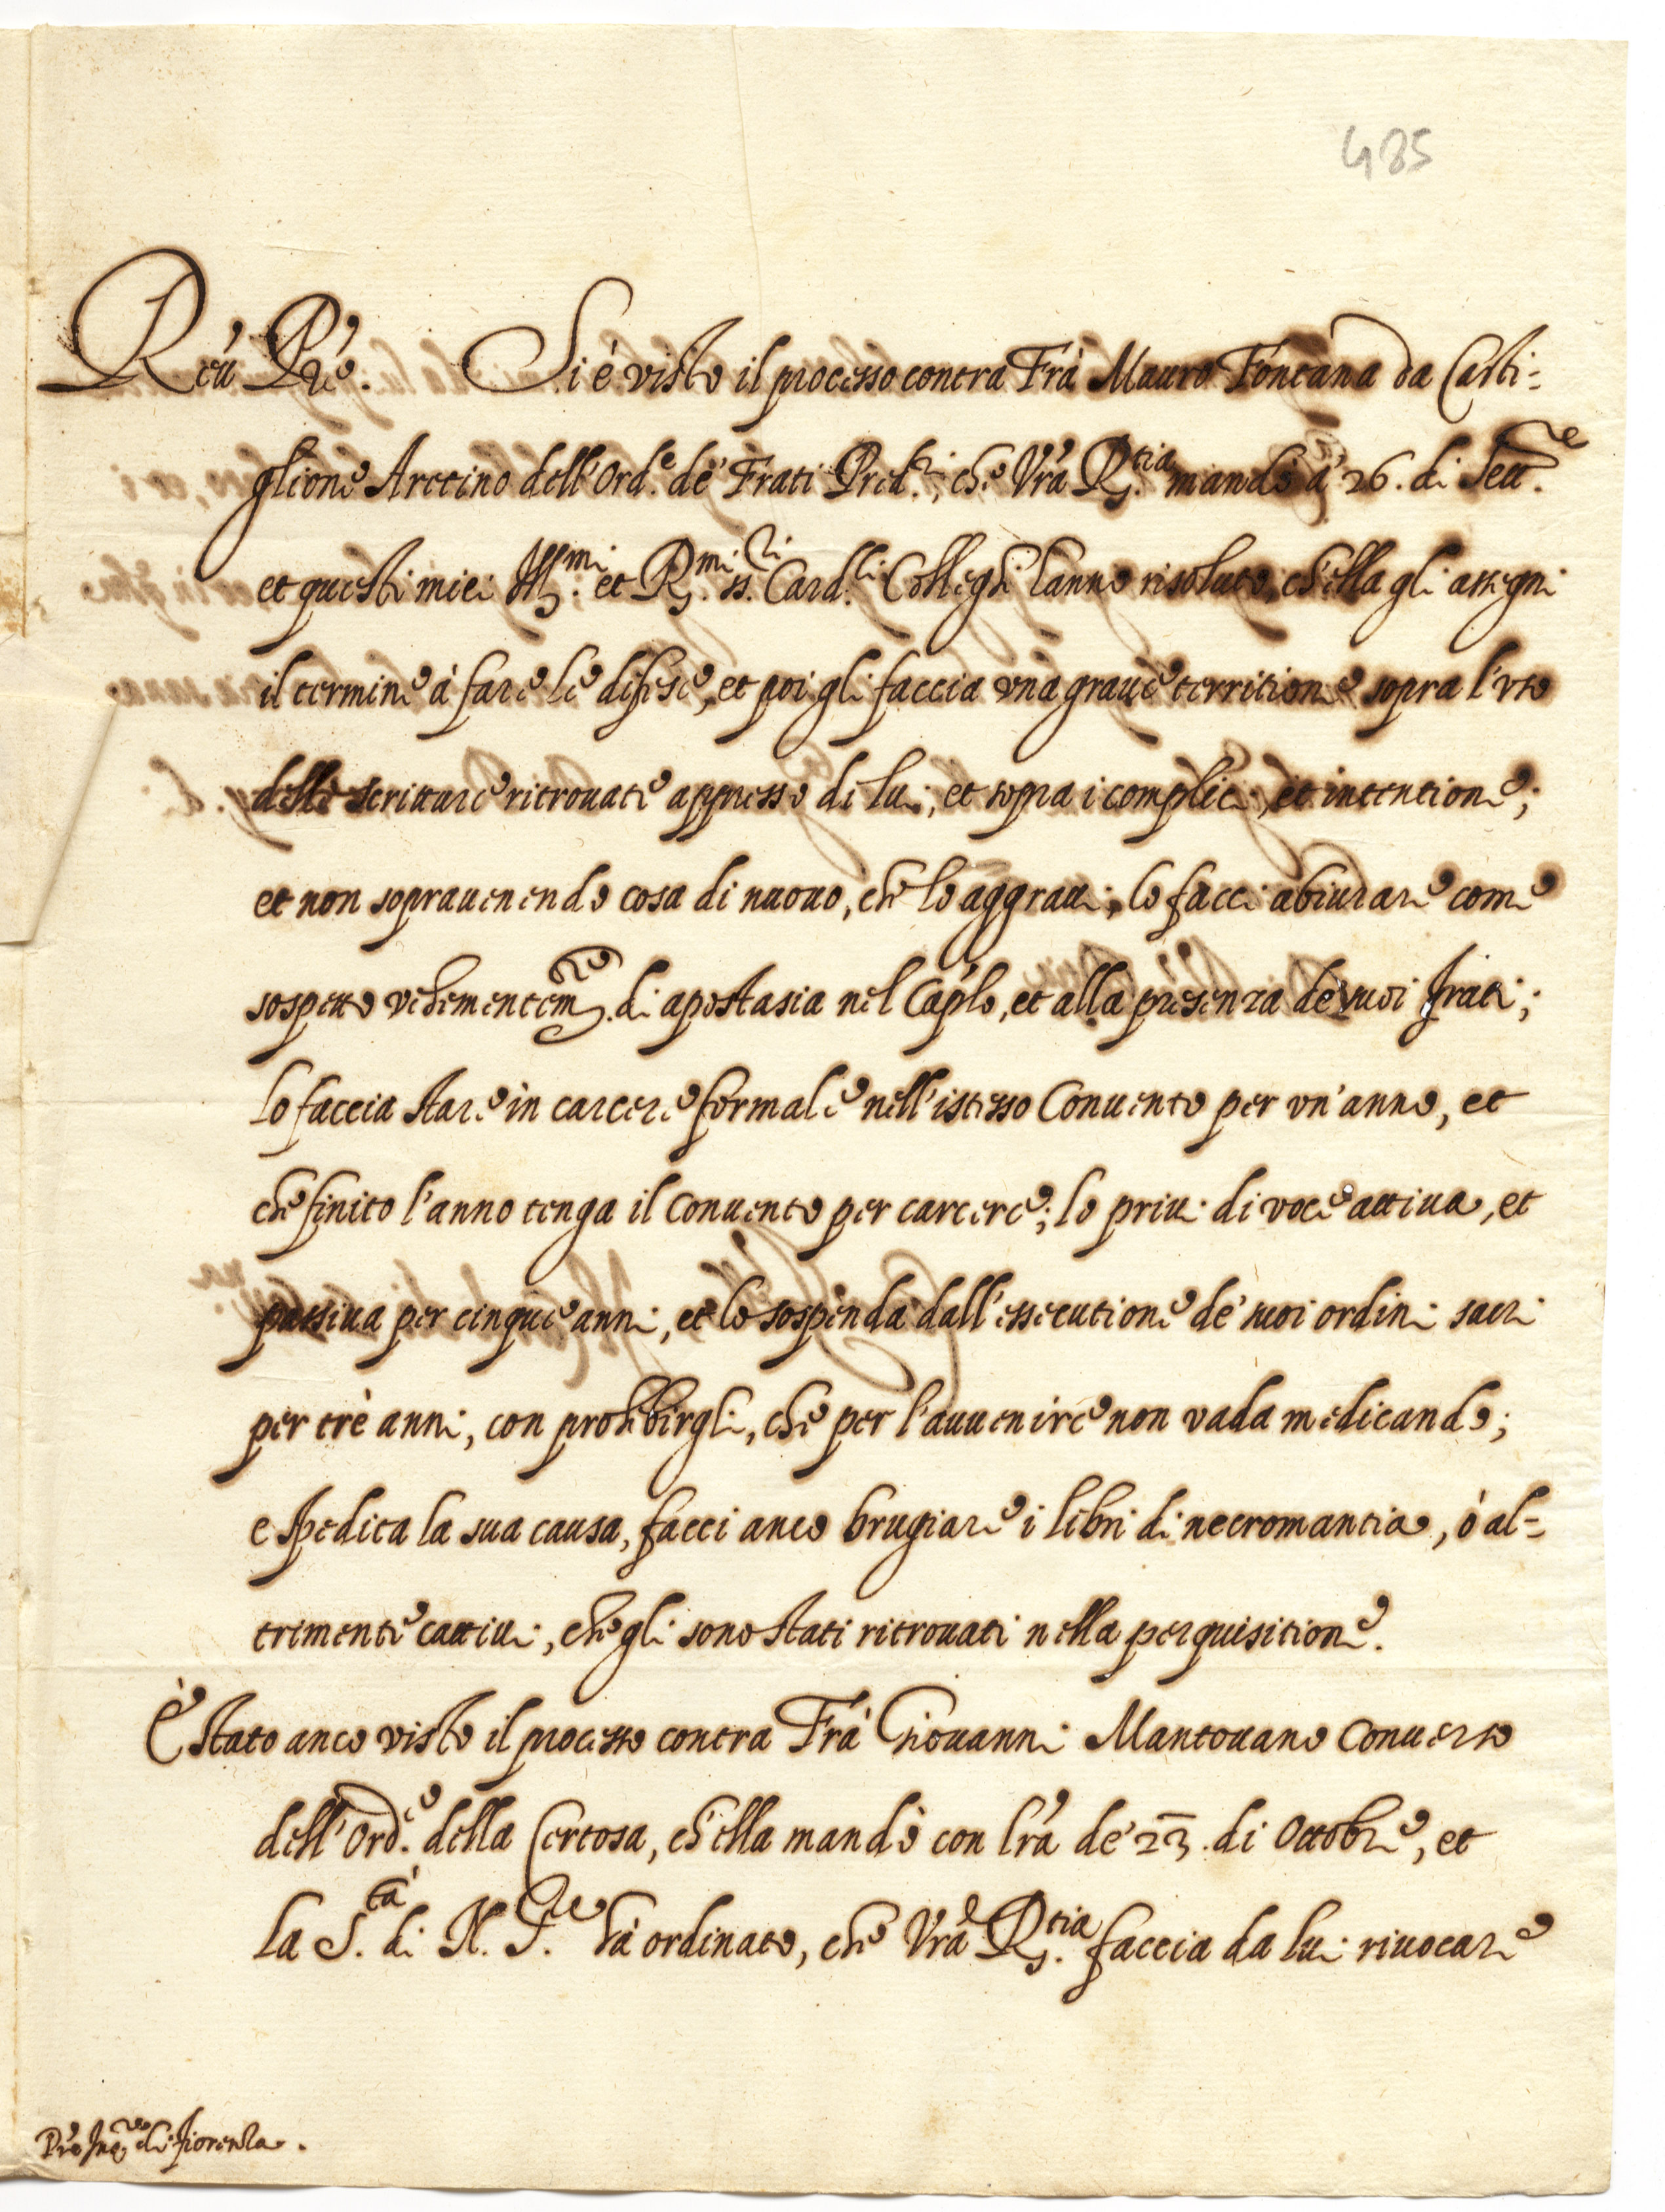 485
Reu. Pre. Si è visto il processo contra Frà Mauro Fontana da Casti-
glione Aretino dell'Ord.e de' Frati Pred.ri, che Vrà R.tia mandò a' 26. di Sett.e
et questi miei Ill.mi et R.mi ss.ri Card.li Colleghi hanno risoluto, ch'ella gli assegni
il termine à fare le difese, et poi gli faccia una graue territione sopra l'uso
delle scritture ritrouate appresso di lui, et sopra i complici, et intentione;
et non soprauenendo cosa di nuouo, che lo aggraui, lo facci abiurare come
sospetto vehementem.te di apostasia nel Cap̃lo, et alla presenza de' suoi frati;
lo faccia stare in carcere formale nell'istesso Conuento per vn'anno, et
che finito l'anno tenga il Conuento per carcere; lo priui di voce attiua, et
passiua per cinque anni, et lo sospenda dall'essecutione de' suoi ordini sacri
per trè anni, con prohibirgli, che per l'auuenire non vada medicando;
e spedita la sua causa, facci anco brugiare i libri di necromantia, ò al-
trimente cattiui, che gli sono stati ritrouati nella perquisitione.
È stato anco visto il processo contra Frà Giouanni Mantouano Conuerso
dell'Ord.e della Certosa, ch'ella mandò con lrà de' 23. di Ottobre, et
la S.tà di N. S.re hà ordinato, che Vrà R.tia faccia da lui riuocare
Pre Inq.re di Fiorenza.